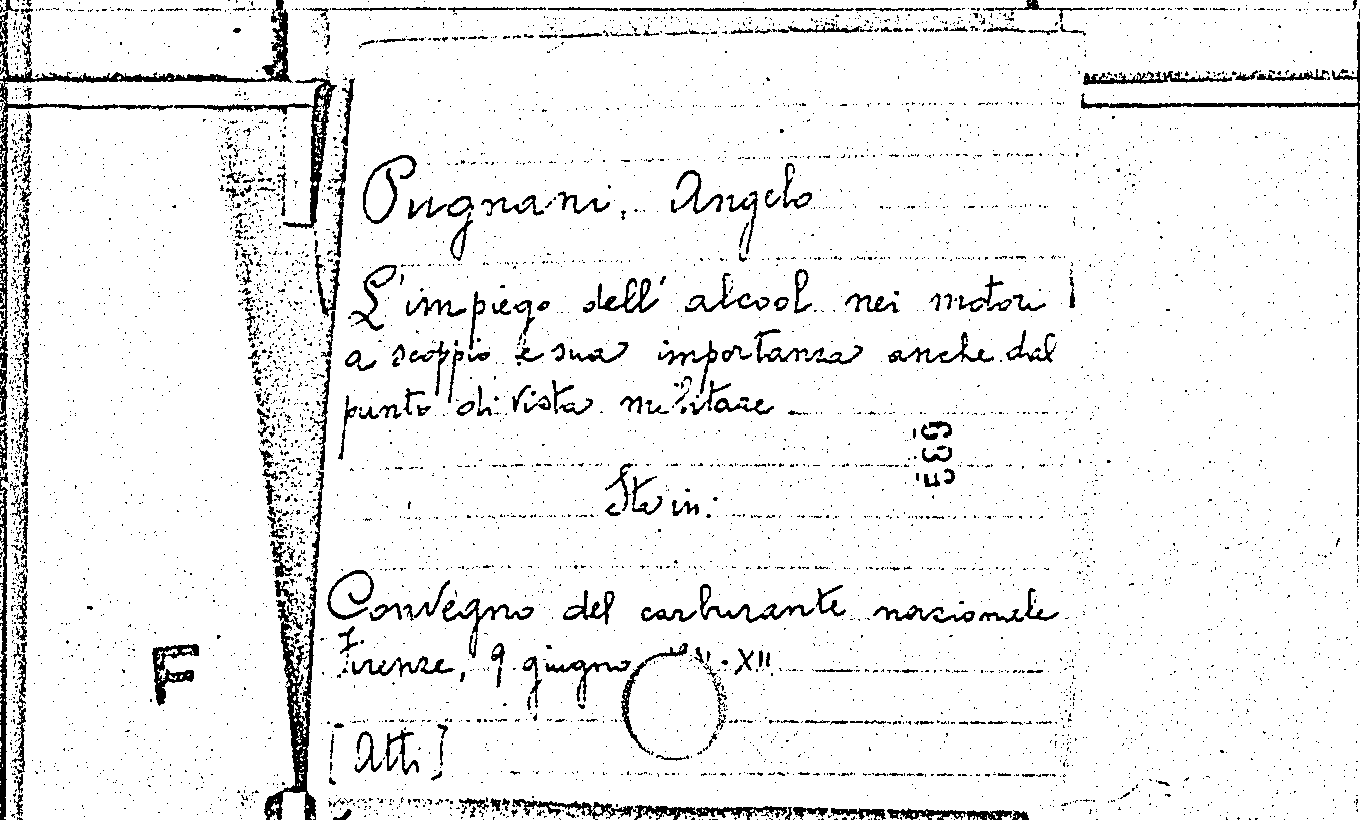 Pugnani, Angelo
L'impiego dell' alcool nei motori
a scoppio e sua importanza anche dal
punto di vista militare.
Sta in:
Convegno del carburante nazionale
Firenze, 9 giugno XII
[Atti]
F